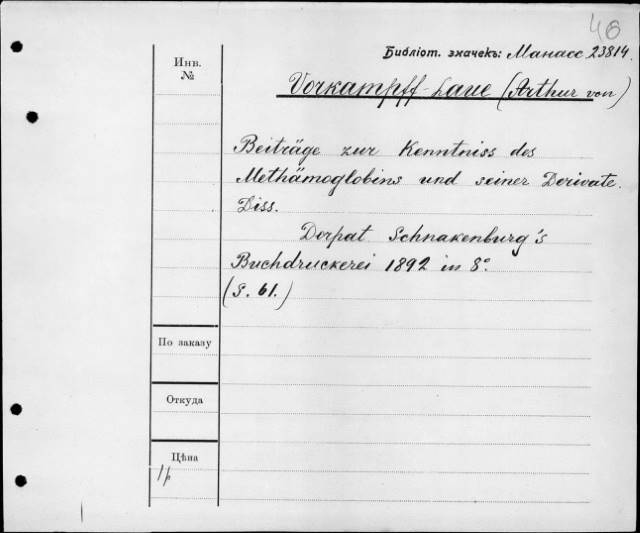 46
Библіот. значекъ: Манасс 23814.
Инв.
№
Vorkampff-Laue (Arthur von)
Beiträge zur Kenntniss des
Methämoglobins und seiner Derivate.
Diss.
Dorpat Schnakenburg's
Buchdruckerei 1892 in 8°.
(S. 61.)
По заказу
Откуда
Цѣна
1р